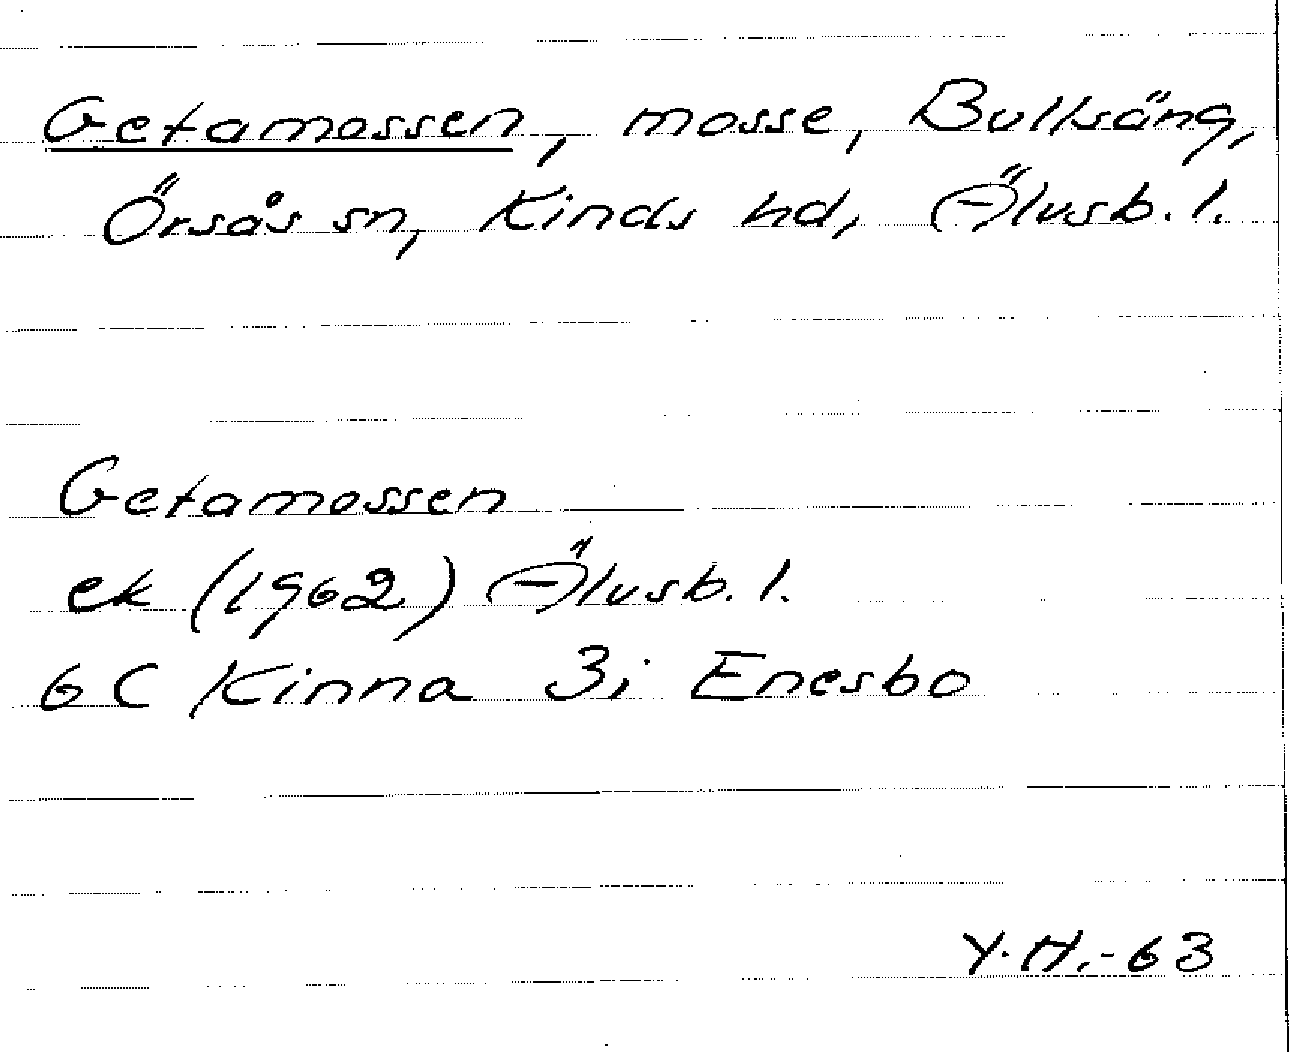 Getamossen, mosse, Bullsäng,
Örsås sn, Kinds hd, Älvsb. l.
Getamossen
ek (1962) Älvsb. l.
6 C Kinna 3i Enesbo
Y.H.-63